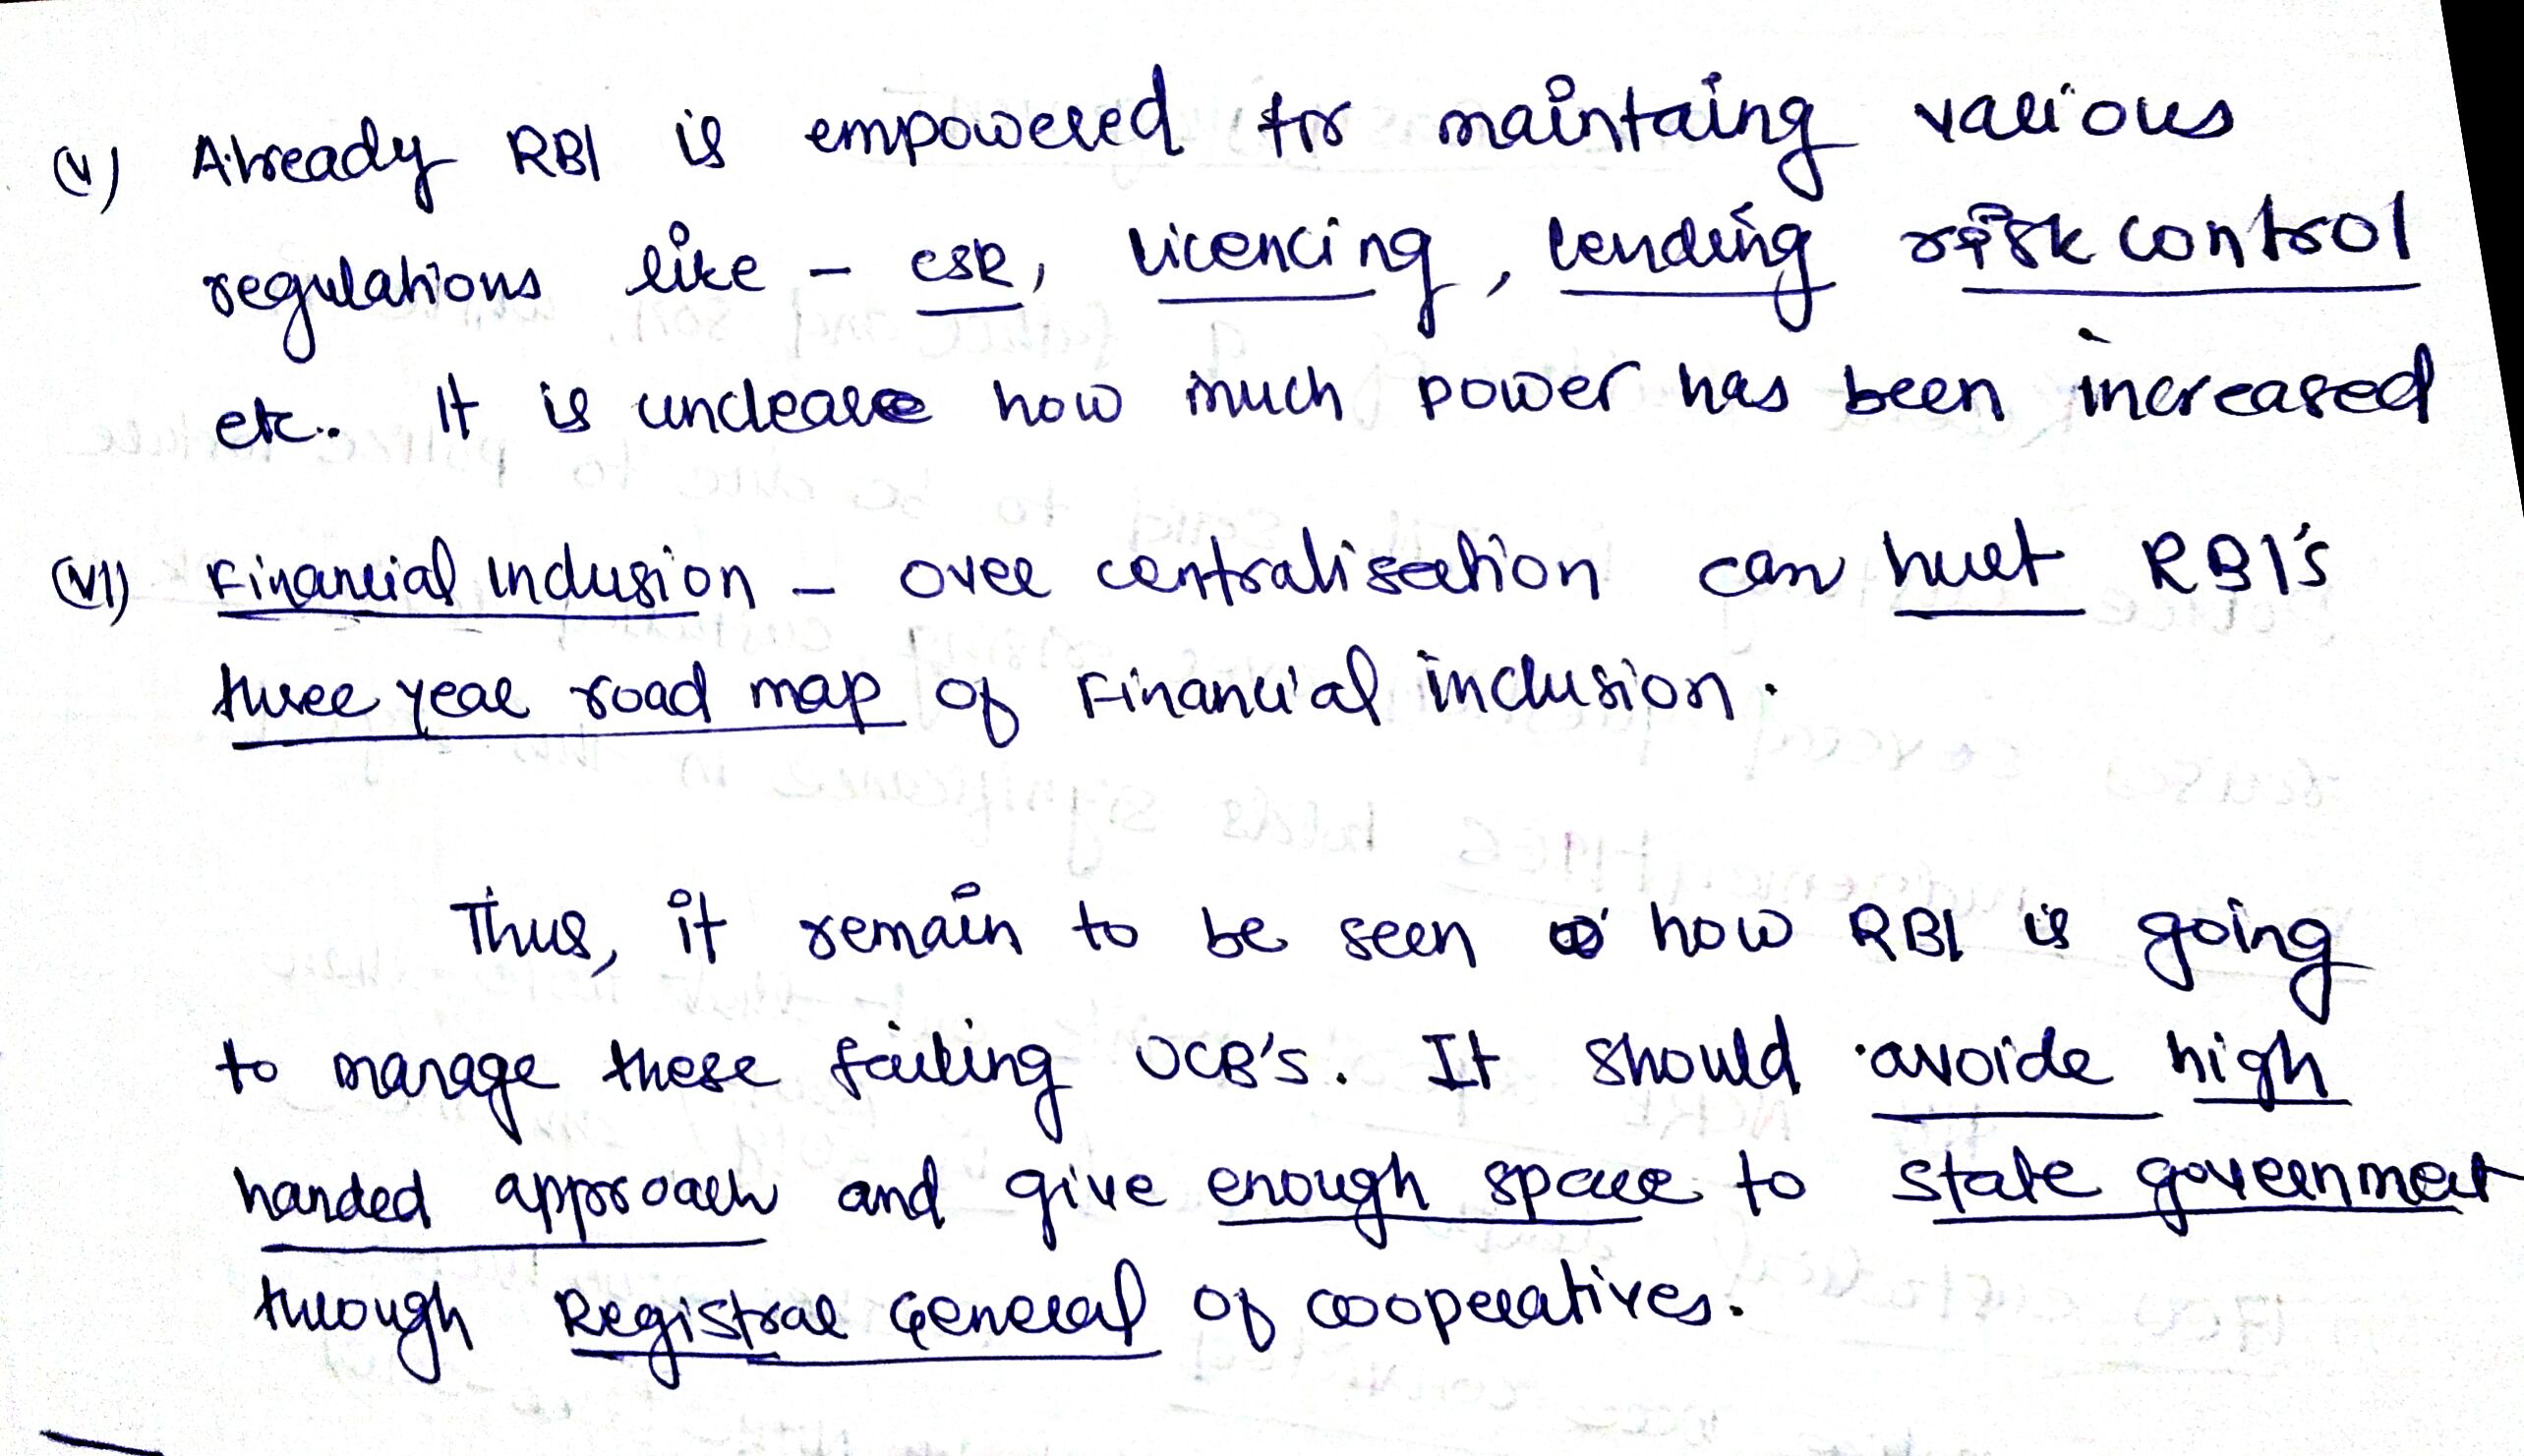 (v) Already RBI is empowered for maintaing various
regulations like – CSR, licencing, lending risk control
etc.. It is uncleare how much power has been increased
(VI) Financial inclusion – over centralisation can hurt RBI's
three year road map of Financial inclusion.
Thus, it remain to be seen how RBI is going
to manage these failing UCB's. It should avoide high
handed approach and give enough space to state government
through Registrar General of cooperatives.